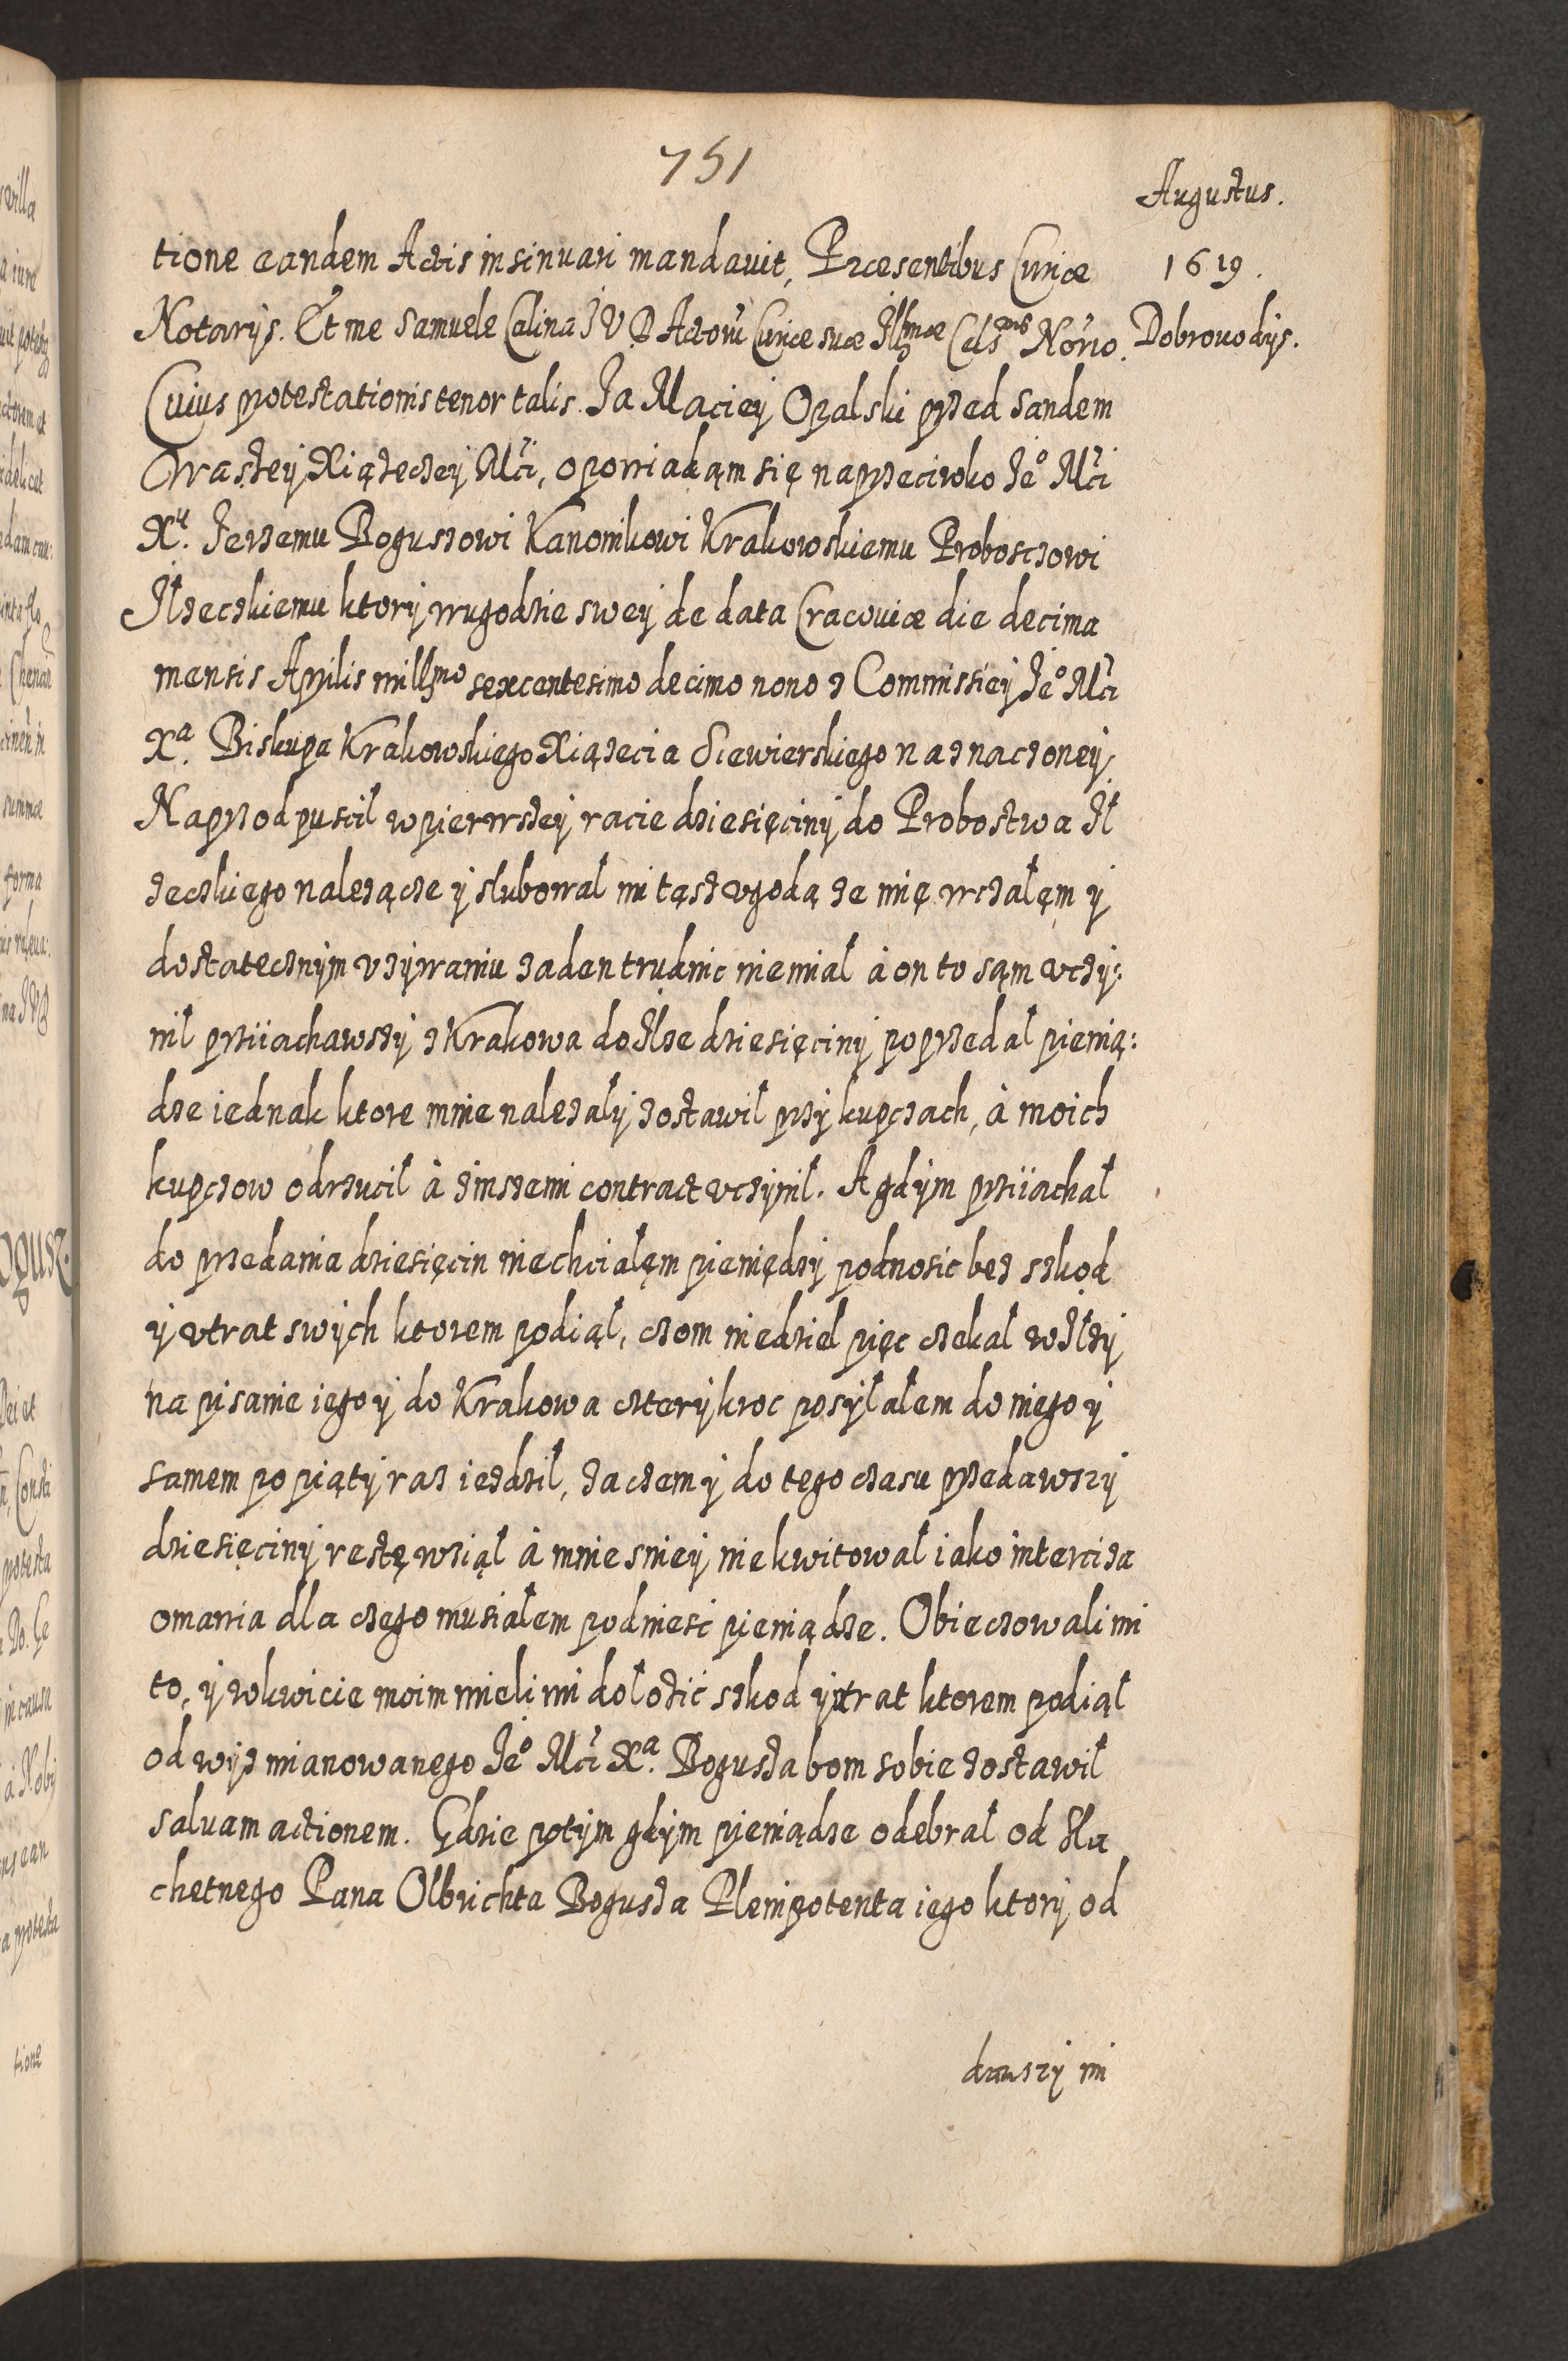 751
Augustus.
tione eandem Actis insinuari mandauit, Præsentibus Curiæ
1619.
Notarijs. Et me Samuele Calina J V D Actorũ Curiæ suæ Illmæ Celsnis Norio.
Dobrouodijs.
Cuius protestationis tenor talis. Ja Maciey Opalski przed Sandem
Waszey Xiążeczey Mci, opowiadąm się naprzeciwko Je° Mci
Xu. Jerzemu Boguszowi Kanonikowi Krakowskiemu Proboszczowi
Jłżeczkiemu ktory wugodzie swey de data Cracouiæ die decima
mensis Aprilis millmo sexcentesimo decimo nono z Commissiey Je° Mci
Xa. Biskupa Krakowskiego Xiążecia Siewierskiego naznaczoney
Naprzod puscił wpierwszey racie dziesięciny do Probostwa Jł
żeczkiego należącze y słubował mi tąsz vgodą że mię wczałęm y
dostatecznym vżywaniu żaden trudnic niemiał à on to sąm vczy:
nił prziiachawszy z Krakowa do Jłże dziesięciny poprzedał pienią:
dze iednak ktore mnie należały zostawił przy kupczach, à moich
kupczow odrzucił à zinszemi contract vczynił. A gdym prziiachał
do przedania dziesięcin niechciałęm pieniędzy podnosic bez szkod
y vtrat swych ktorem podiął, czom niedziel pięc czekał wJłży
na pisanie iego y do Krakowa czterykroc posyłałem do niego y
samem po piąty raz iezdził, zaczem y do tego czasu przedawszy
dziesięciny resztę wziął à mnie sniey niekwitował iako intercisa
omawia dla czego musiałem podniesc pieniądze. Obieczowali mi
to, y wkwicie moim mieli mi dołożić szkod y vtrat ktorem podiął
od wyż mianowanego Je° Mci Xa. Bogusza bom sobie zostawił
saluam actionem. Gdzie potym gdym pieniądze odebrał od Szla
chetnego Pana Olbrichta Bogusza Plenipotenta iego ktory od
dawszy mi